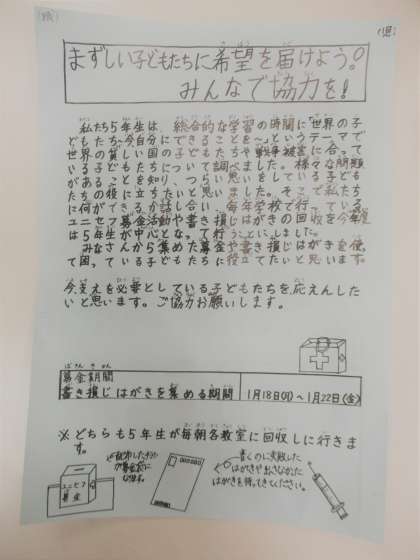 まずしい子どもたちに希望を届けよう。
みんなで協力を!
私たち5年生は、総合的な学習の時間に「世界の子
どもたち~今自分にできることを~」というテーマで
世界の貧しい国の子どもたちや戦争被害に合って
いる子どもたちについて調べました。様々な問題
があることを知り、つらい思いをしている子ども
たちの役に立ちたいと思いました。そこで私たち
に何ができるか話し合い、毎年学校で行っている
ユニセフ募金活動や書き損じはがきの回収を今年度
は5年生が中心となって行うことにしました。
みなさんから集めた募金や書き損じはがきを使っ
て困っている子どもたちに役立てたいと思います。
今支えを必要としている子どもたちを応えんした
いと思います。ご協力お願いします。
ぼきんきかん
募金期間
書き損じはがきを集める期間
1月18日(月)~1月22日(金)
※どちらも5年生が毎朝各教室に回収しに行きま
す。
ユニセフ
募金
書くのに失敗した
はがきや出さなかった
はがきを持ってきてください。